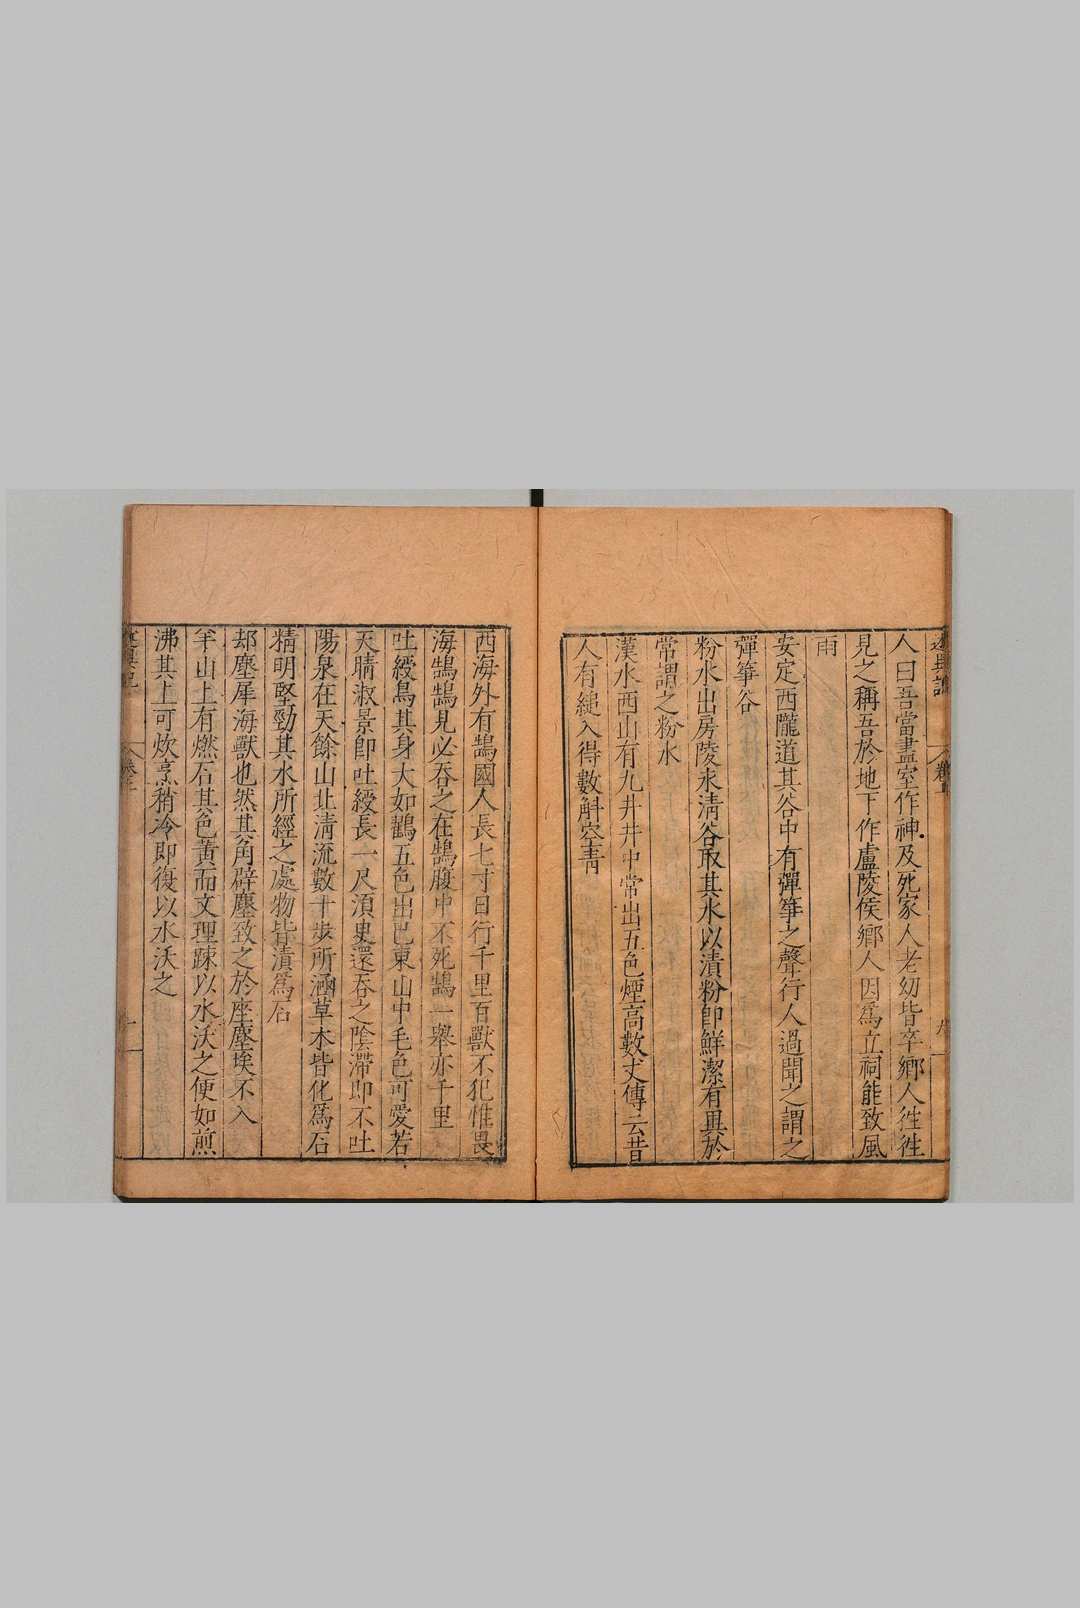 述異記 卷下 九
人曰吾當盡室作神及死家人老幼皆卒鄉人往往
見之稱吾於地下作廬陵侯鄉人因爲立祠能致風
雨
安定西隴道其谷中有彈箏之聲行人過聞之謂之
彈箏谷
粉水出房陵永清谷取其水以漬粉卽鮮潔有異於
常謂之粉水
漢水西山有九井井中常出五色煙高數丈傳云昔
人有縋入得數斛空青
西海外有鵠國人長七寸日行千里百獸不犯惟畏
海鵠鵠見必吞之在鵠腹中不死鵠一舉亦千里
吐綬鳥其身大如鸛五色出巴東山中毛色可愛若
天晴淑景卽吐綬長一尺須臾還吞之陰滯卽不吐
陽泉在天餘山北清流數十步所涵草木皆化爲石
精明堅勁其水所經之處物皆漬爲石
却塵犀海獸也然其角辟塵致之於座塵埃不入
羊山上有燃石其色黃而文理疎以水沃之便如煎
沸其上可炊烹稍冷卽復以水沃之
述異記 卷下 十